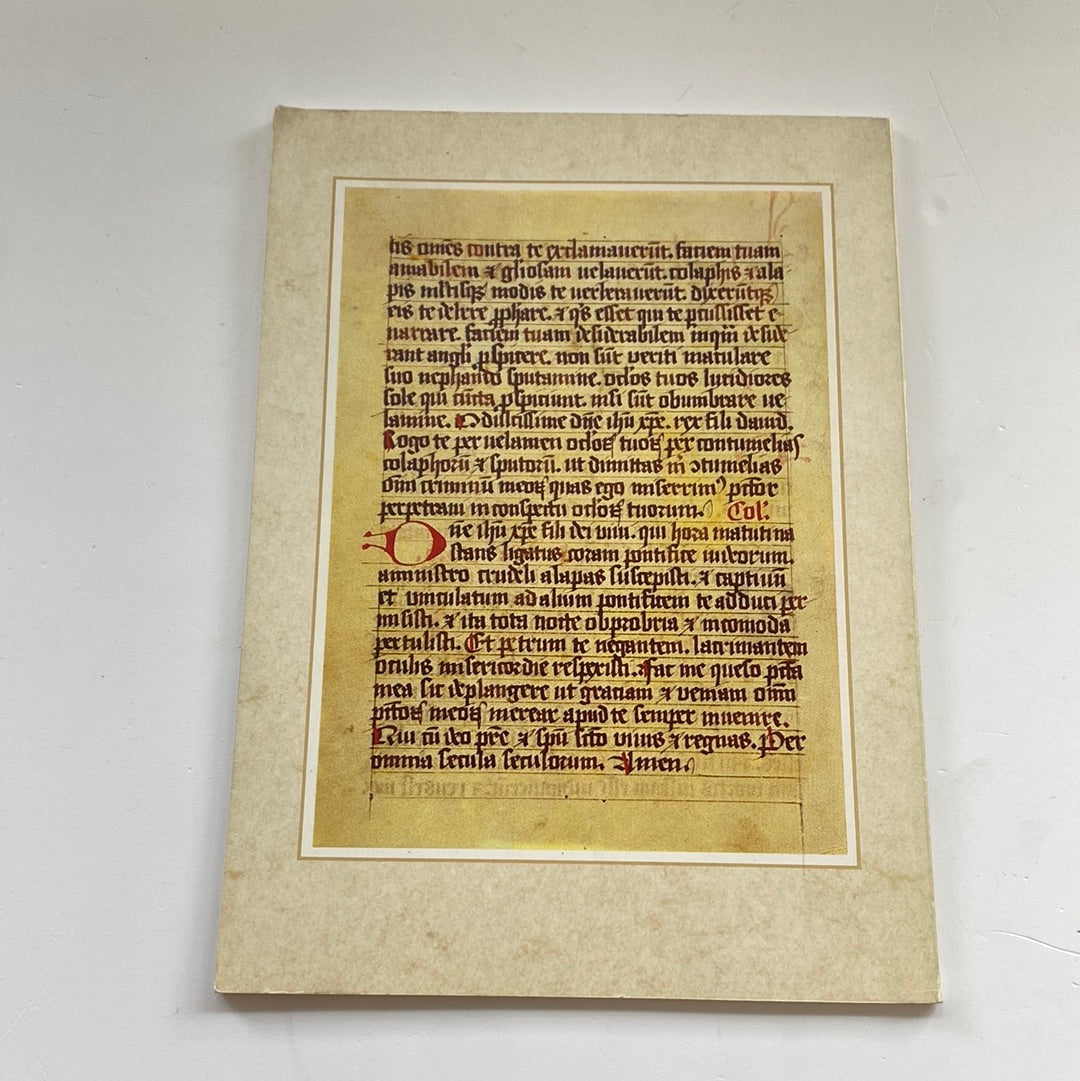 tis om̄es contra te exclamauerūt. faciem tuam
amabilem ⁊ gl̄iosam uelauerūt. colaphis ⁊ ala
pis ml̄tisqꝫ modis te uerberauerūt. dixerūtqꝫ
eis te debere ꝓphare. ⁊ qⁱs esset qui te ꝑcussisset e-
narrare. faciem tuam desiderabilem inqͣm deside
rant angl̄i ꝓspicere. non sūt veriti maculare
suo nephando sputamine. oc̄los tuos lucidiores
sole qui cūcta ꝑspiciunt. nisi sūt obumbrare ue
lamine. O dulcissime dn̄e ih̄u xp̄e. rex fili dauid.
Rogo te per uelamen oc̄loꝝ tuoꝝ per contumelias
colaphorū ⁊ sputorū. ut dimittas m̄ ↄtumelias
om̄i criminū meoꝝ quas ego miserrimꝰ pc̄tor
perpetraui in conspectu oc̄loꝝ tuorum. Col'.
Dn̄e ih̄u xp̄e fili dei viui. qui hora matutina
stans ligatus coram pontifice iudeorum.
a ministro crudeli alapas suscepisti. ⁊ captiuū
et vinculatum ad alium pontificem te adduci per
misisti. ⁊ ita tota nocte obprobria ⁊ incomoda
pertulisti. Et petrum te negantem. lacrimantem
oculis misericordie respexisti. Fac me queso pc̄ta
mea sic deplangere ut gratiam ⁊ veniam om̄i
pc̄toꝝ meoꝝ merear apud te semper inuenire.
Qui cū deo pr̄e ⁊ sp̄u sc̄o viuis ⁊ regnas. Per
omnia secula seculorum. Amen.